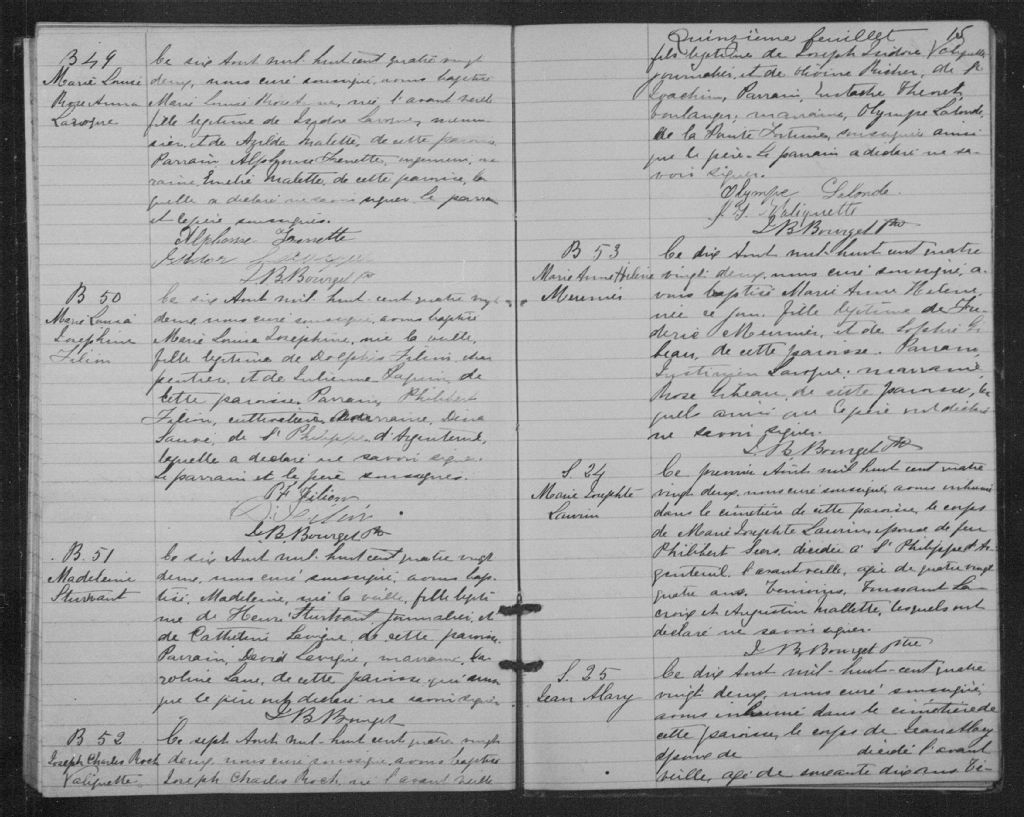 B 49
Marie Louise
Rose Anna
Larocque
Ce six Aout mil huit cent quatre vingt
deux, nous curé soussigné, avons baptisé
Marie Louise Rose Anna, née l'avant veille
fille legitime de Isidore Larocque, menui-
sier, et de Agilda Malette, de cette paroisse
Parrain, Alphonse Frenette, ma-
raine, Emélie Malette, de cette paroisse, la
quelle a declaré ne savoir signer. Le parrain
et le père soussignés.
Alphonse Frenette
J B Bourget Ptre
B 50
Marie Louisa
Josephine
Filion
Ce six Aout mil huit-cent quatre vingt
deux, nous curé soussigné, avons baptisé
Marie Louisa Josephine, née la veille,
fille legitime de Dolphis Filion, char
pentier, et de Julienne Papin, de
cette paroisse. Parrain, Philibert
Filion, cultivateur, marraine, Dina
Sauvé, de St Philippe d'Argenteuil,
laquelle a declaré ne savoir signer.
Le parrain et le père soussignés.
P F Filion
D. Filion
J B Bourget Ptre
B 51
Madeleine
Sturtvant
Ce six Aout mil huit cent quatre vingt
deux, nous curé soussigné, avons bap-
tisé, Madeleine, née la veille, fille legiti-
me de Henri Sturtvant, Journalier, et
de Catherine Lavigne, de cette paroisse.
Parrain, David Lavigne, marraine, Ca-
roline Lane, de cette paroisse, qui ainsi
que le père ont declaré ne savoir signer.
J B Bourget
B 52
Joseph Charles Roch
Valiquette
Ce sept Aout mil huit cent quatre vingt
deux, nous curé soussigné, avons baptisé
Joseph Charles Roch, né l'avant veille
Quinzième feuillet
15
fils legitime de Joseph Isidore Valiquette,
journalier, et de Olivine Risher, de St
Joachim, Parrain, Eustache Theoret,
boulanger; marraine, Olympe Lalonde,
de la Pointe Fortune, soussignée ainsi
que le père. Le parrain a declaré ne sa-
voir signer.
Olympe Lalonde
J. I. Valiquette
J B Bourget Ptre
B 53
Marie Anne Hélène
Meunier
Ce dix Aout mil huit cent quatre
vingt deux, nous curé soussigné, a-
vons baptisé Marie Anne Helene,
née ce jour, fille legitime de Fre-
deric Meunier, et de Sophie Gri-
beau, de cette paroisse. Parrain,
Larocque; marraine,
Rose de cette paroisse, les
quels ainsi que le père ont declaré
ne savoir signer.
J B Bourget Ptre
S. 24
Marie Josephte
Laurin
Ce premier Août mil huit cent quatre
vingt deux, nous curé soussigné, avons inhumé
dans le cimetière de cette paroisse, le corps
de Marie Josephte Laurin, epouse de feu
Philibert Seers, décédée à St Philippe d'Ar
genteuil, l'avant veille, agée de quatre vingt
quatre ans. Temoins, Toussaint La-
croix et Augustin Mallette, lesquels ont
declaré ne savoir signer.
J B Bourget Ptre
S. 25
Jean Alary
Ce dix Aout mil-huit-cent quatre
vingt deux, nous curé soussigné,
avons inhumé dans le cimetière de
cette paroisse, le corps de Jean Alary
époux de décédé l'avant
veille, agé de soixante dix ans. Té-